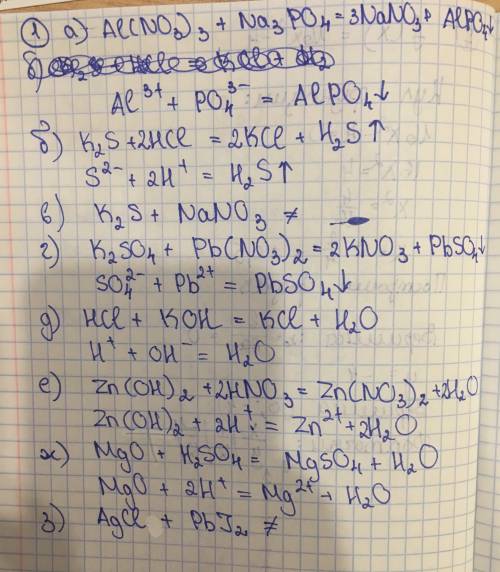 ① а) Al(NO₃)₃ + Na₃PO₄ = 3NaNO₃ + AlPO₄↓
б)
Al³⁺ + PO₄³⁻ = AlPO₄↓
б) K₂S + 2HCl = 2KCl + H₂S↑
S²⁻ + 2H⁺ = H₂S↑
в) K₂S + NaNO₃ ≠
г) K₂SO₄ + Pb(NO₃)₂ = 2KNO₃ + PbSO₄↓
SO₄²⁻ + Pb²⁺ = PbSO₄↓
д) HCl + KOH = KCl + H₂O
H⁺ + OH⁻ = H₂O
е) Zn(OH)₂ + 2HNO₃ = Zn(NO₃)₂ + 2H₂O
Zn(OH)₂ + 2H⁺ = Zn²⁺ + 2H₂O
ж) MgO + H₂SO₄ = MgSO₄ + H₂O
MgO + 2H⁺ = Mg²⁺ + H₂O
з) AgCl + PbJ₂ ≠